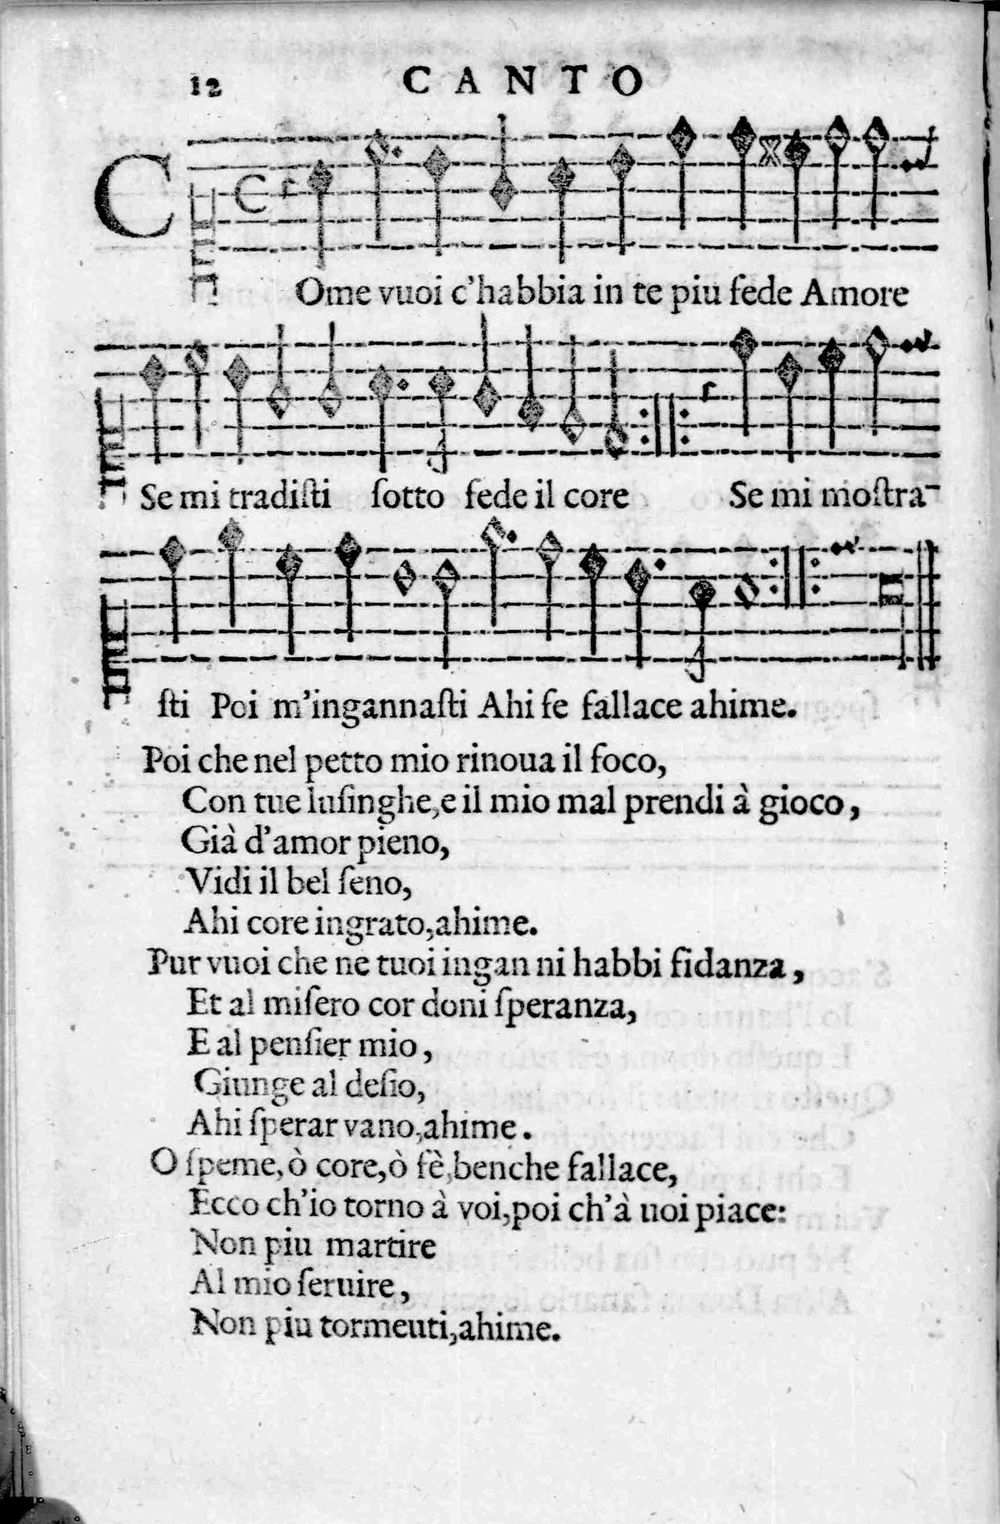 12 CANTO
COme vuoi c'habbia in te piu fede Amore
Se mi tradiſti ſotto fede il core Se mi moſtra-
ſti Poi m'ingannaſti Ahi fe fallace ahime.
Poi che nel petto mio rinoua il foco,
Con tue luſinghe,e il mio mal prendi à gioco,
Già d'amor pieno,
Vidi il bel ſeno,
Ahi core ingrato,ahime.
Pur vuoi che ne tuoi ingan ni habbi fidanza,
Et al miſero cor doni ſperanza,
E al penſier mio,
Giunge al deſio,
Ahi ſperar vano,ahime.
O ſpeme,ò core,ò fè,benche fallace,
Ecco ch'io torno à voi,poi ch'à uoi piace:
Non piu martire
Al mio ſeruire,
Non piu tormeuti,ahime.